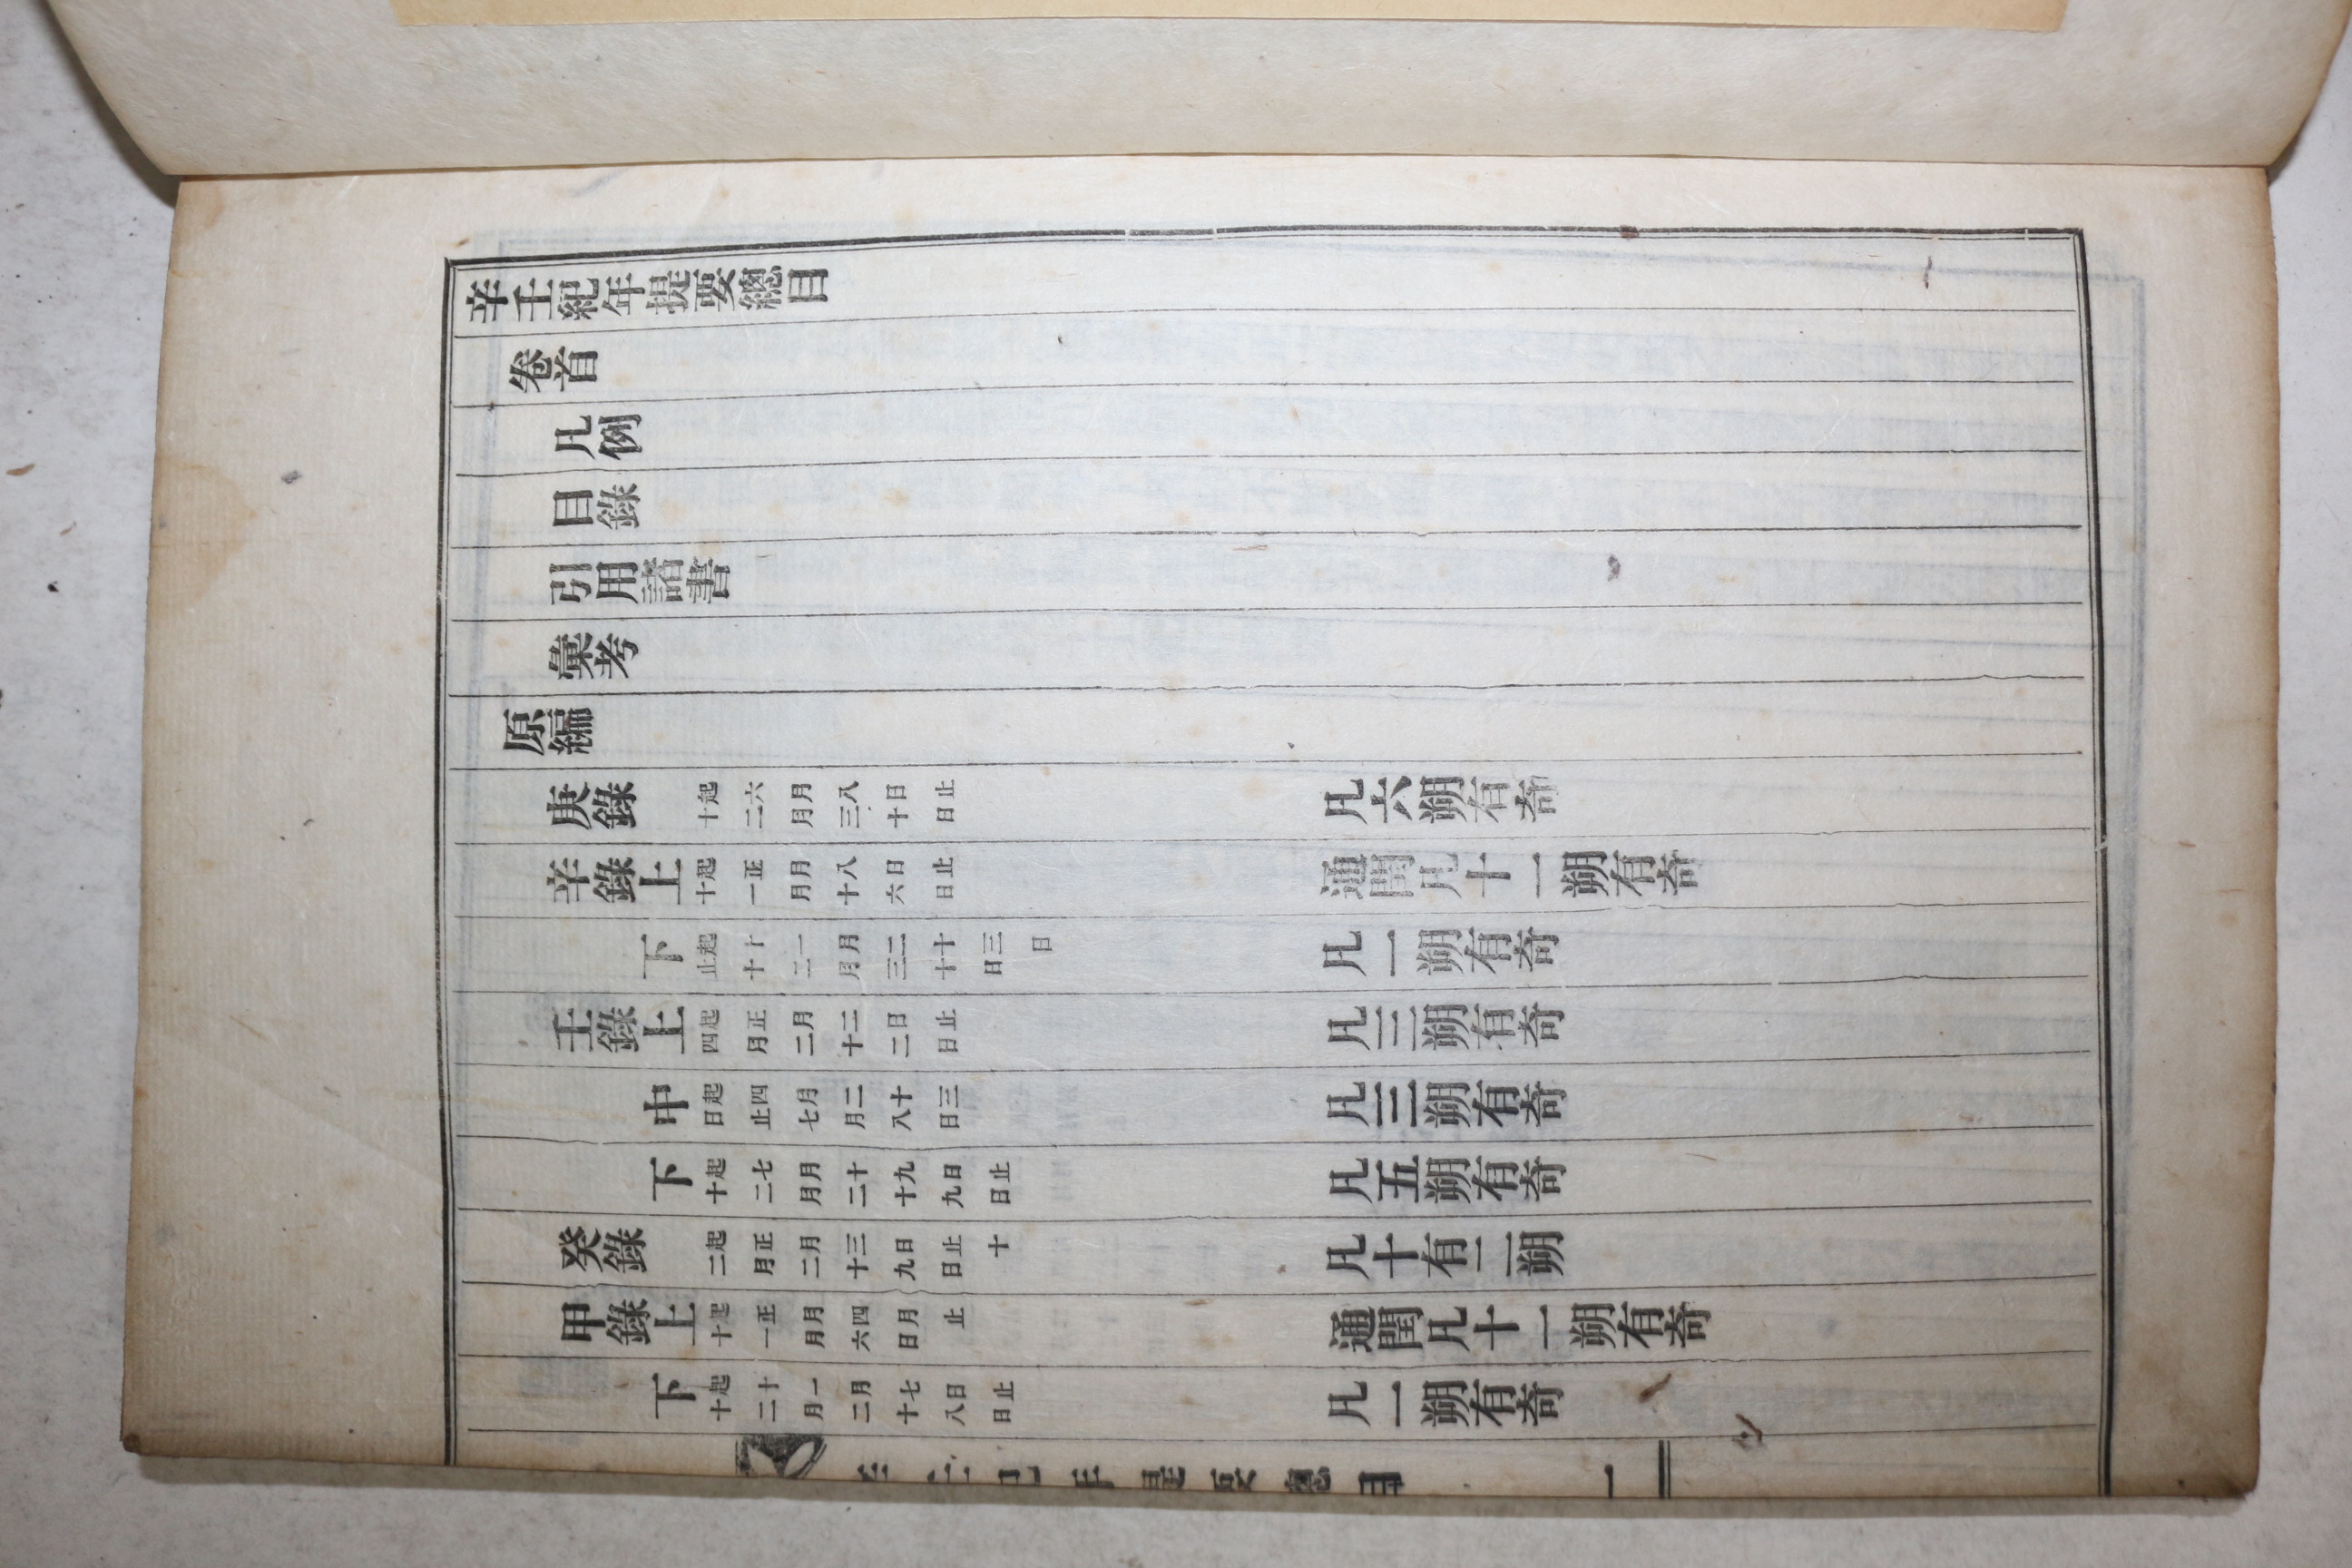 辛壬紀年提要總目
卷首
凡例
目錄
引用諸書
彙考
原編
庚錄 起六月八日止十二月三十日 凡六朔有奇
辛錄上 起正月八日止十一月十六日 通閏凡十一朔有奇
下 起十一月二十三日止十二月三十日 凡一朔有奇
壬錄上 起正月二日止四月二十二日 凡三朔有奇
中 起四月二十三日止七月八日 凡三朔有奇
下 起七月十九日止十二月二十九日 凡五朔有奇
癸錄 起正月三日止十二月二十九日 凡十有二朔
甲錄上 起正月四月止十一月六日 通閏凡十一朔有奇
下 起十一月七日止十二月二十八日 凡一朔有奇
辛壬紀年提要總目 一